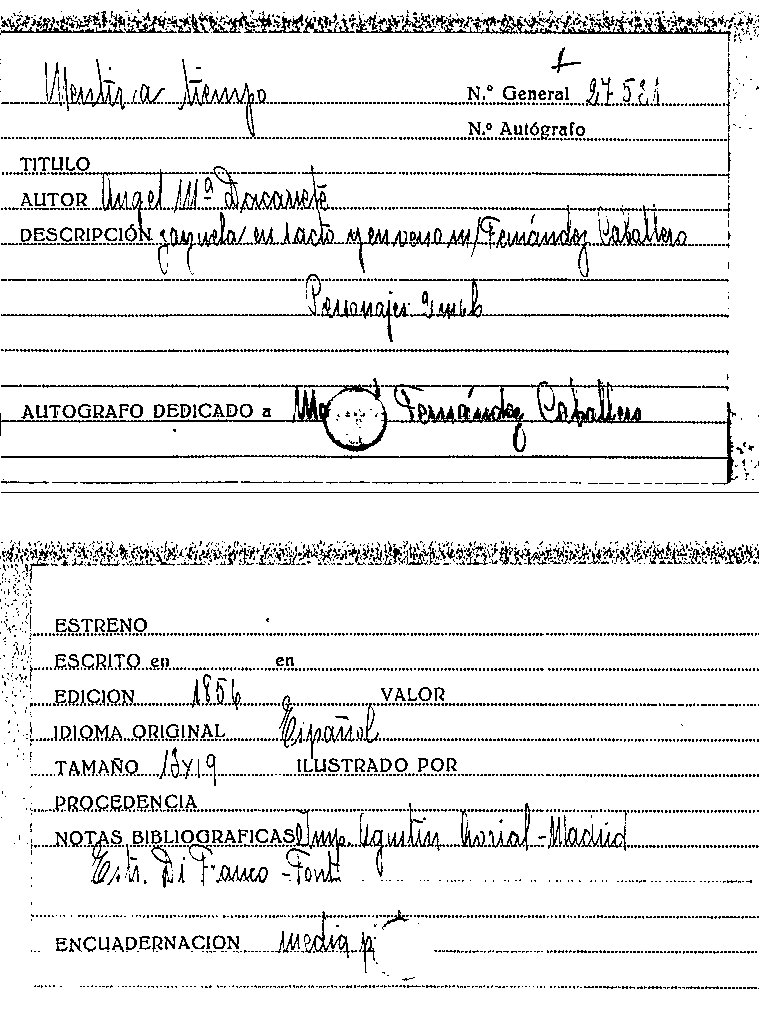 Mentir a tiempo
N.º General 27 521
N.º Autógrafo
TITULO
AUTOR Angel Mª Dacarrete
DESCRIPCIÓN zarzuela en 1 acto y en verso m/ Fernández Caballero
Personajes
AUTOGRAFO DEDICADO a Fernández Caballero
ESTRENO
ESCRITO en en
EDICION 1856 VALOR
IDIOMA ORIGINAL Español
TAMAÑO 13x19 ILUSTRADO POR
PROCEDENCIA
NOTAS BIBLIOGRAFICAS Imp. Agustín - Madrid
Estr. Di Franco - Font
ENCUADERNACION media